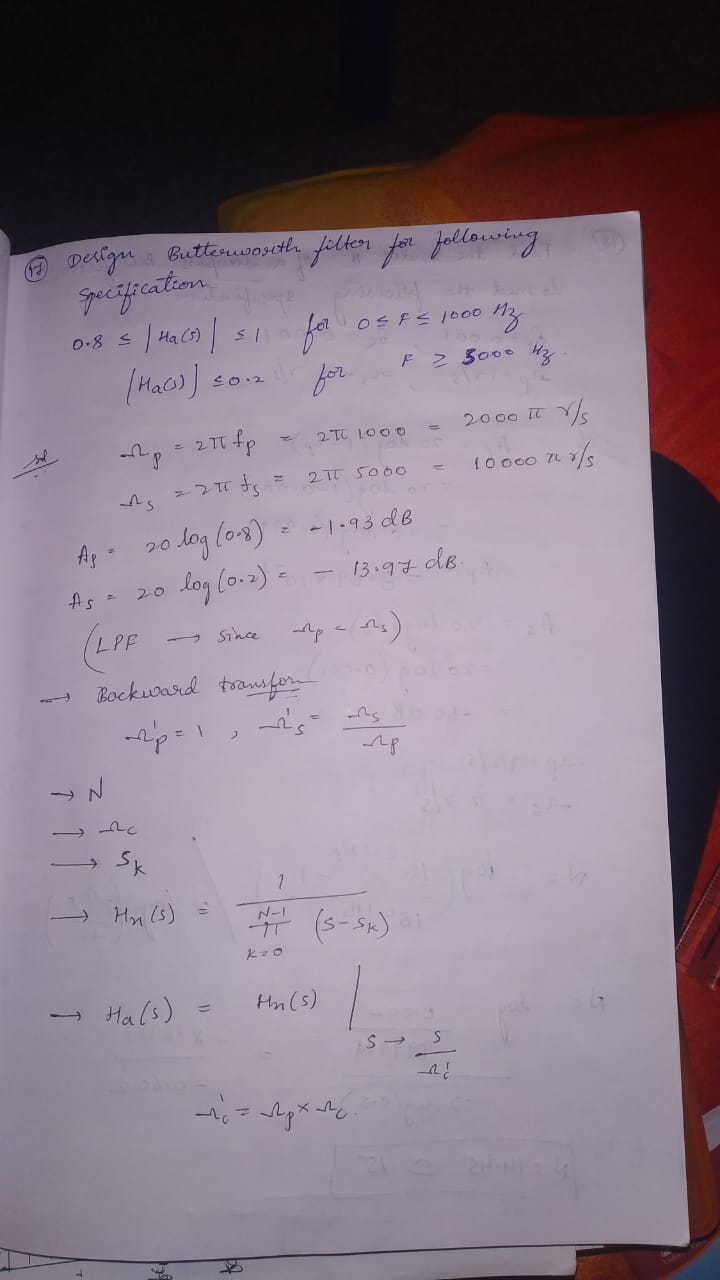 17 Design Butterworth filter for following
specification
0.8 ≤ |Ha(s)| ≤ 1 for 0 ≤ F ≤ 1000 Hz
|Ha(s)| ≤ 0.2 for F ≥ 5000 Hz.
sol Ωp = 2π fp = 2π 1000 = 2000 π r/s
Ωs = 2π fs = 2π 5000 = 10000 π r/s
Ap = 20 log (0.8) = -1.93 dB
As = 20 log (0.2) = - 13.97 dB.
(LPF → since Ωp < Ωs)
→ Backward transfom
Ω'p = 1 , Ω's = Ωs / Ωp
→ N
→ Ωc
→ Sk
→ Hn(s) = 1 / N-1 π k=0 (s-sk)
→ Ha(s) = Hn(s) | s → s / Ω'c
Ω'c = Ωp × Ωc.